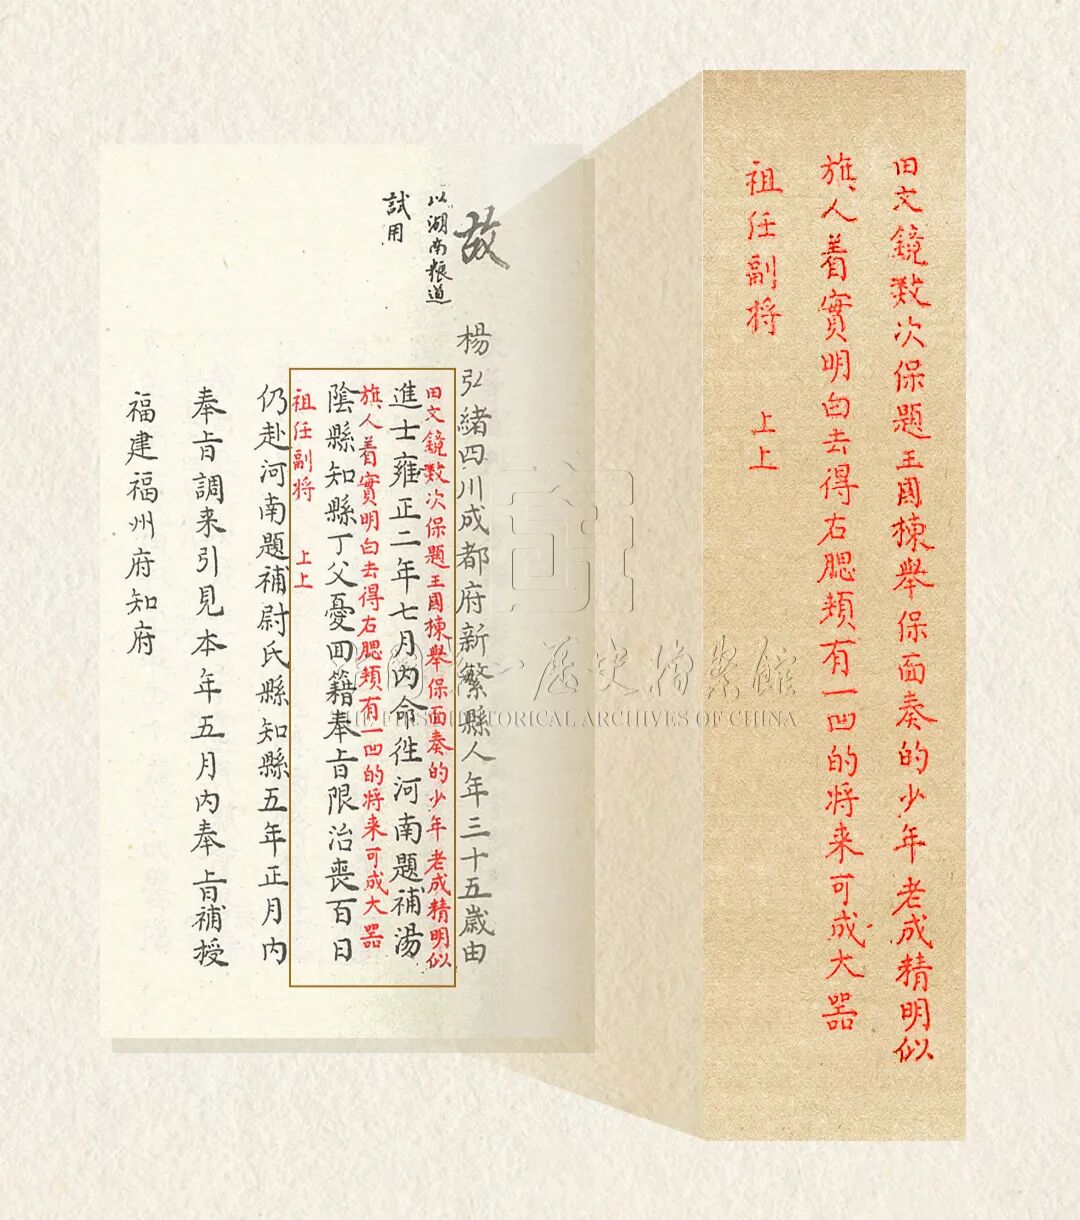 田文鏡數次保題王國棟舉保面奏的少年老成精明似
旗人着實明白去得右腮頬有一凹的将来可成大器
祖任副将 上上
故
以湖南粮道
試用
楊弘緒四川成都府新繁縣人年三十五歲由
田文鏡數次保題王國棟舉保面奏的少年老成精明似
進士雍正二年七月內命往河南題補湯
旗人着實明白去得右腮頬有一凹的将来可成大器
陰縣知縣丁父憂回籍奉旨限治喪百日
祖任副将 上上
仍赴河南題補尉氏縣知縣五年正月內
奉旨調来引見本年五月內奉旨補授
福建福州府知府
中國第一歷史檔案館
THE FIRST HISTORICAL ARCHIVES OF CHINA